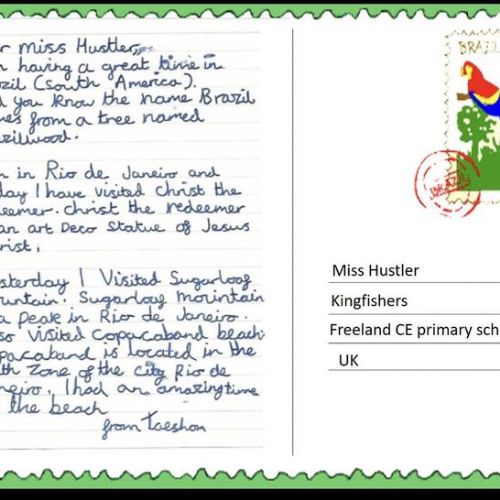 r miss Hustler,
n having a great time in
zil (South America).
d you know the name Brazil
nes from a tree named
zilwood.
n in Rio de Janeiro and
day I have visited Christ the
eemer. Christ the redeemer
an art Deco Statue of Jesus
hrist.
esterday I Visited Sugarloaf
ountain. Sugarloaf Mountain
a Peak in Rio de Janeiro.
so visited Copacaband beach
pacaband is located in the
th Zone of the city Rio de
neiro. I had an amazing time
the beach
from Taeshan
BRAZIL
BRAZIL
Miss Hustler
Kingfishers
Freeland CE primary sch
UK